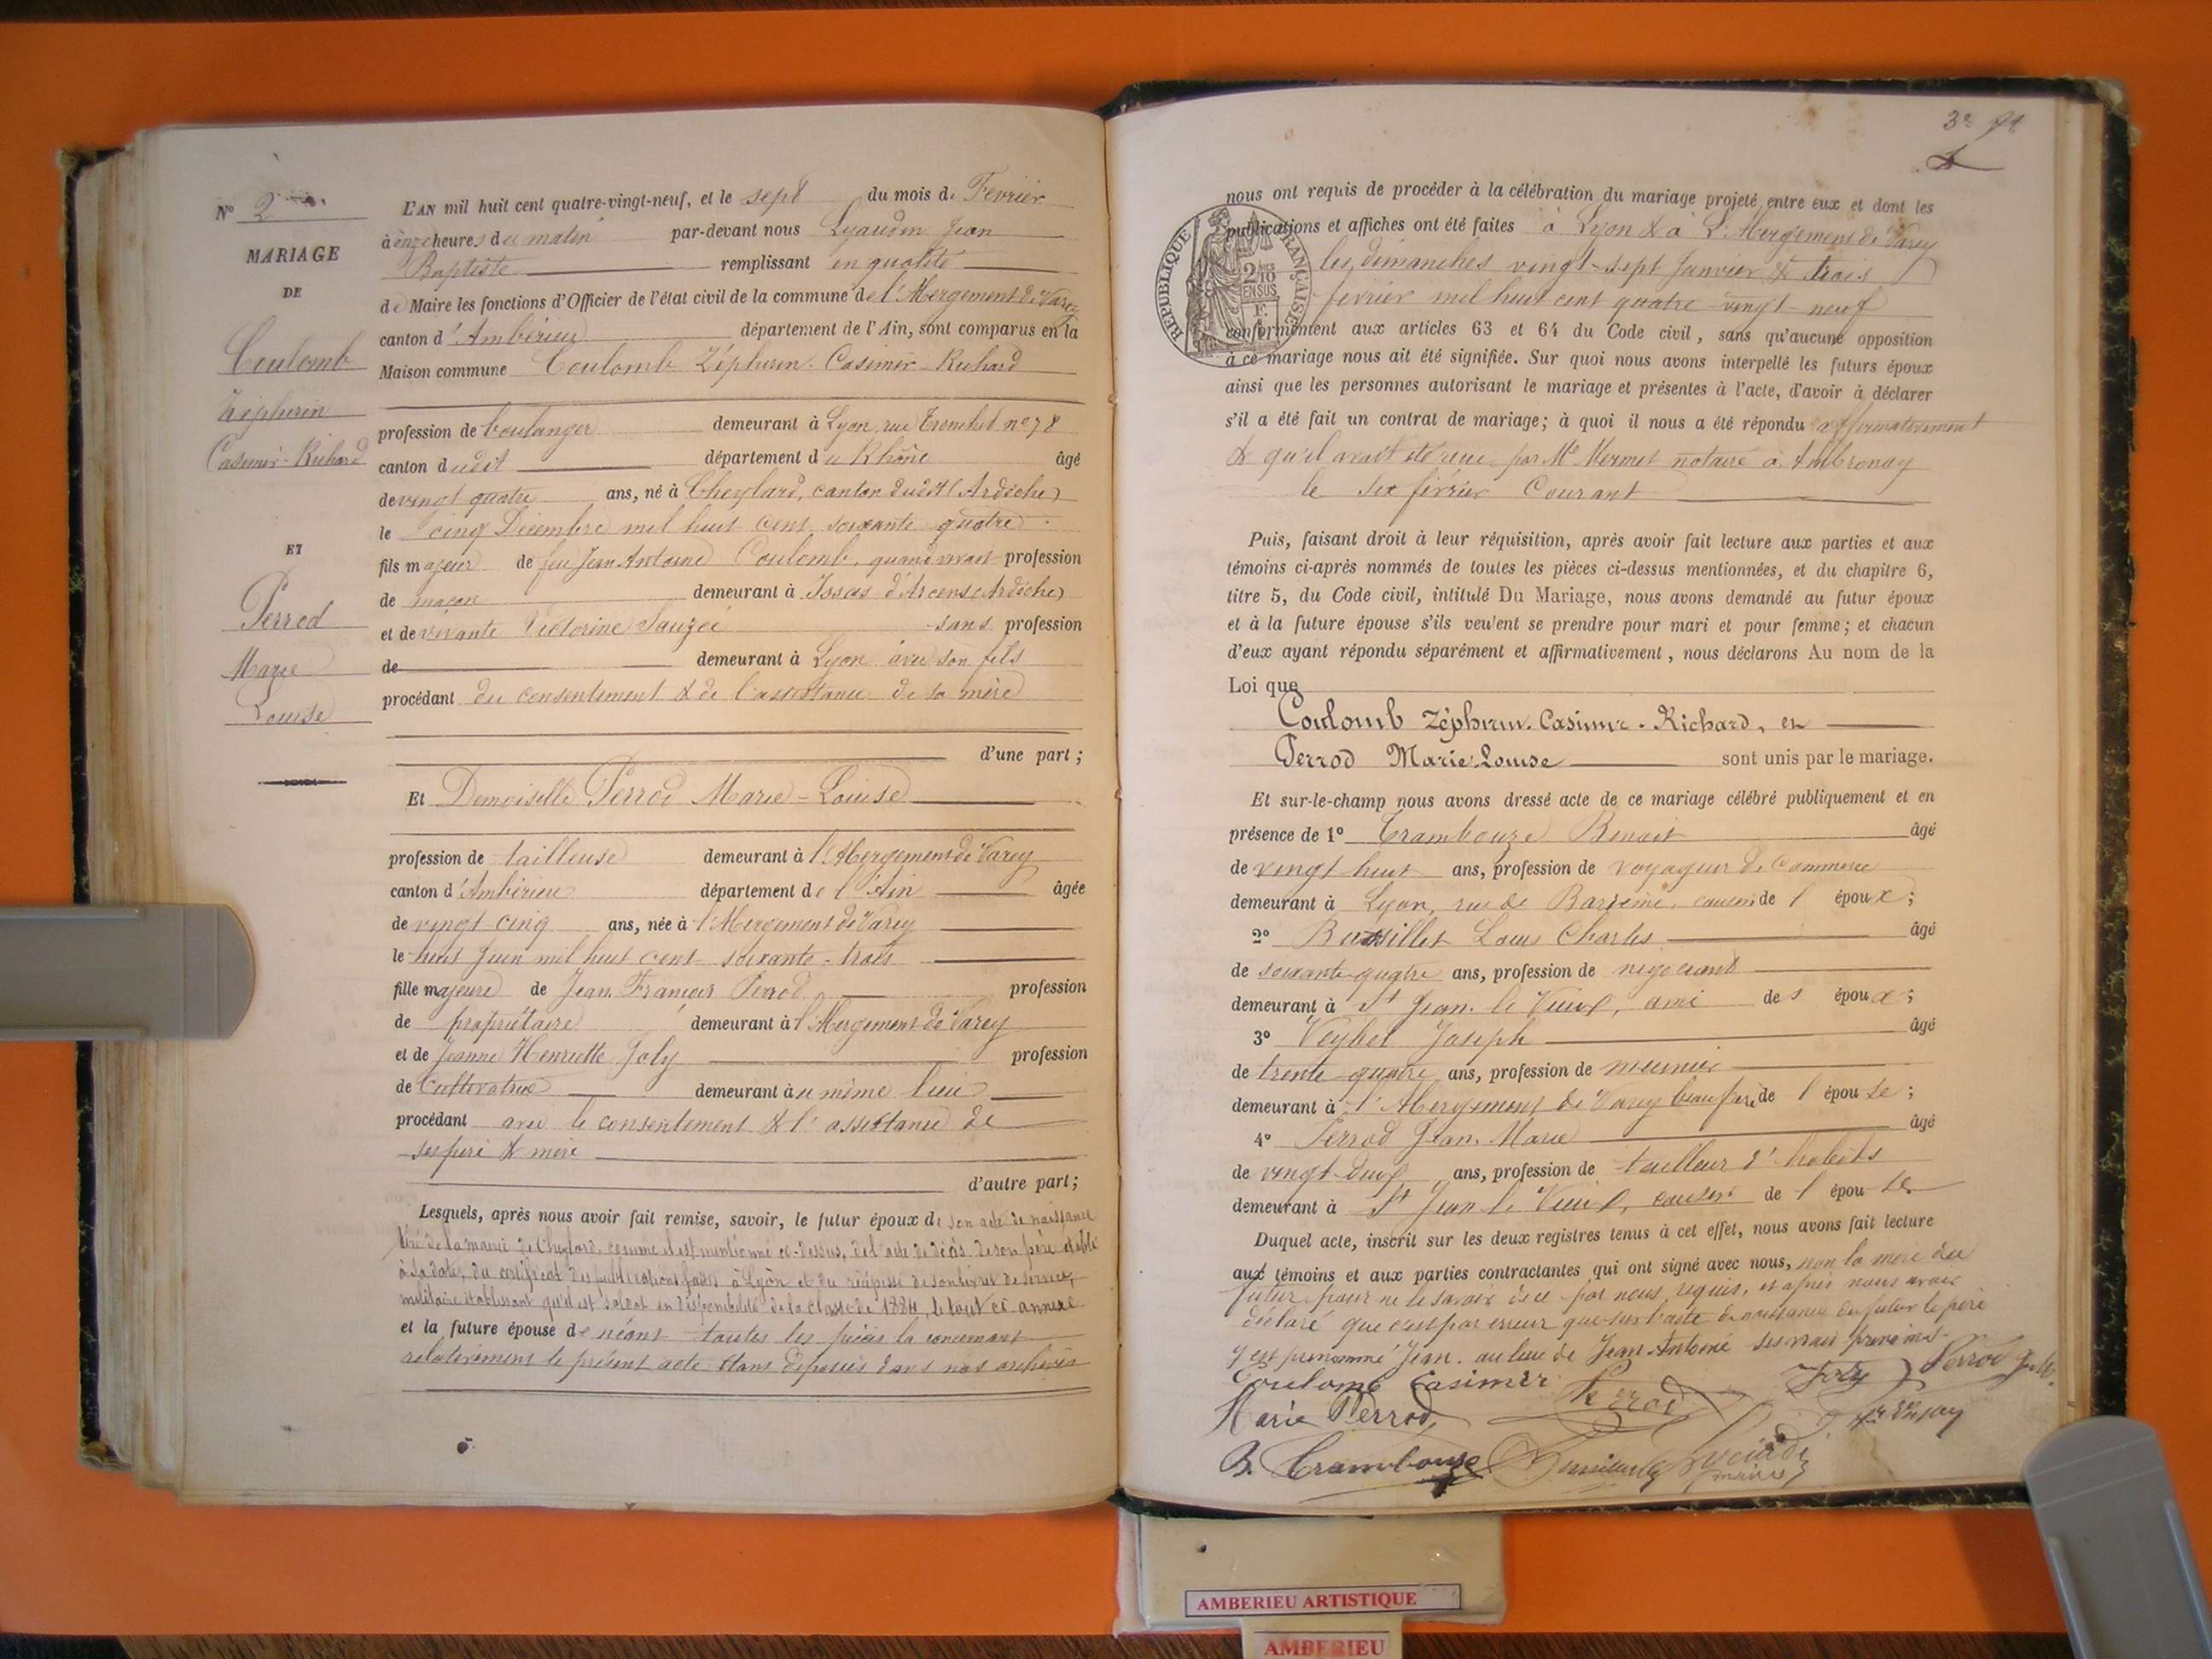 Nº 2
MARIAGE
DE
Coulomb
Zéphirin
Casimir-Richard
ET
Perrod
Marie
Louise
L'AN mil huit cent quatre-vingt-neuf, et le sept du mois de Février
à onze heures du matin par-devant nous Lyaudin Jean
Baptiste remplissant en qualité
de Maire les fonctions d'Officier de l'état civil de la commune de l'Abergement de Varey
canton d'Ambérieu département de l'Ain, sont comparus en la
Maison commune Coulomb Zéphirin-Casimir-Richard
profession de boulanger demeurant à Lyon, rue Tronchet nº 78
canton dudit département du Rhône âgé
de vingt quatre ans, né à Cheylard, canton dudit (Ardèche)
le cinq Décembre mil huit cent soixante quatre
fils majeur de feu Jean Antoine Coulomb, quand vivait profession
de maçon demeurant à Issas d'Arcens (Ardèche)
et de vivante Victorine Sauzée sans profession
de demeurant à Lyon avec son fils
procédant du consentement & de l'assistance de sa mère
d'une part;
Et Demoiselle Perrod Marie-Louise
profession de tailleuse demeurant à l'Abergement de Varey
canton d'Ambérieu département de l'Ain âgée
de vingt-cinq ans, née à l'Abergement de Varey
le huit Juin mil huit cent soixante-trois
fille majeure de Jean François Perrod profession
de propriétaire demeurant à l'Abergement de Varey
et de Jeanne Henriette Joly profession
de Cultivatrice demeurant au même lieu
procédant avec le consentement & l'assistance de
ses père & mère
d'autre part;
Lesquels, après nous avoir fait remise, savoir, le futur époux de son acte de naissance
tiré de la mairie de Cheylard, comme il est mentionné ci-dessus, de l'acte de décès de son père établi
à sa date, du certificat des publications faites à Lyon et du récépissé de son livret de service
militaire établissant qu'il est soldat en disponibilité de la classe de 1884, le tout ci annexé
et la future épouse de néant toutes les pièces la concernant
relativement le présent acte étant déposées dans nos archives
3e
nous ont requis de procéder à la célébration du mariage projeté entre eux et dont les
publications et affiches ont été faites à Lyon & à L'Abergement de Varey
les dimanches vingt-sept Janvier & trois
février mil huit cent quatre-vingt-neuf
RÉPUBLIQUE FRANÇAISE
2/10 EN SUS
conformément aux articles 63 et 64 du Code civil, sans qu'aucune opposition
à ce mariage nous ait été signifiée. Sur quoi nous avons interpellé les futurs époux
ainsi que les personnes autorisant le mariage et présentes à l'acte, d'avoir à déclarer
s'il a été fait un contrat de mariage; à quoi il nous a été répondu affirmativement
& qu'il avait été reçu par Me Mermet notaire à Ambronay
le six février Courant
Puis, faisant droit à leur réquisition, après avoir fait lecture aux parties et aux
témoins ci-après nommés de toutes les pièces ci-dessus mentionnées, et du chapitre 6,
titre 5, du Code civil, intitulé Du Mariage, nous avons demandé au futur époux
et à la future épouse s'ils veulent se prendre pour mari et pour femme; et chacun
d'eux ayant répondu séparément et affirmativement, nous déclarons Au nom de la
Loi que
Coulomb Zéphirin-Casimir-Richard, et
Perrod Marie Louise sont unis par le mariage.
Et sur-le-champ nous avons dressé acte de ce mariage célébré publiquement et en
présence de 1º Trambouze Benoit âgé
de vingt huit ans, profession de voyageur de Commerce
demeurant à Lyon, rue de cousin de l époux;
2º Louis Charles âgé
de soixante-quatre ans, profession de négociant
demeurant à St Jean-le-Vieux, ami de s époux;
3º Joseph âgé
de trente-quatre ans, profession de meunier
demeurant à l'Abergement de Varey beau frère de l épouse;
4º Perrod Jean-Marie âgé
de vingt-deux ans, profession de tailleur d'habits
demeurant à St Jean le Vieux, cousin de l épouse
Duquel acte, inscrit sur les deux registres tenus à cet effet, nous avons fait lecture
aux témoins et aux parties contractantes qui ont signé avec nous, non la mère du
futur pour ne le savoir de ce par nous requis, et après nous avoir
déclaré que c'est par erreur que sur l'acte de naissance du futur le père
y est prénommé Jean au lieu de Jean-Antoine ses vrais prénoms.
Coulomb Casimir Perrod Joly Perrod J.M.
Marie Perrod
B. Trambouze
AMBERIEU ARTISTIQUE
AMBERIEU